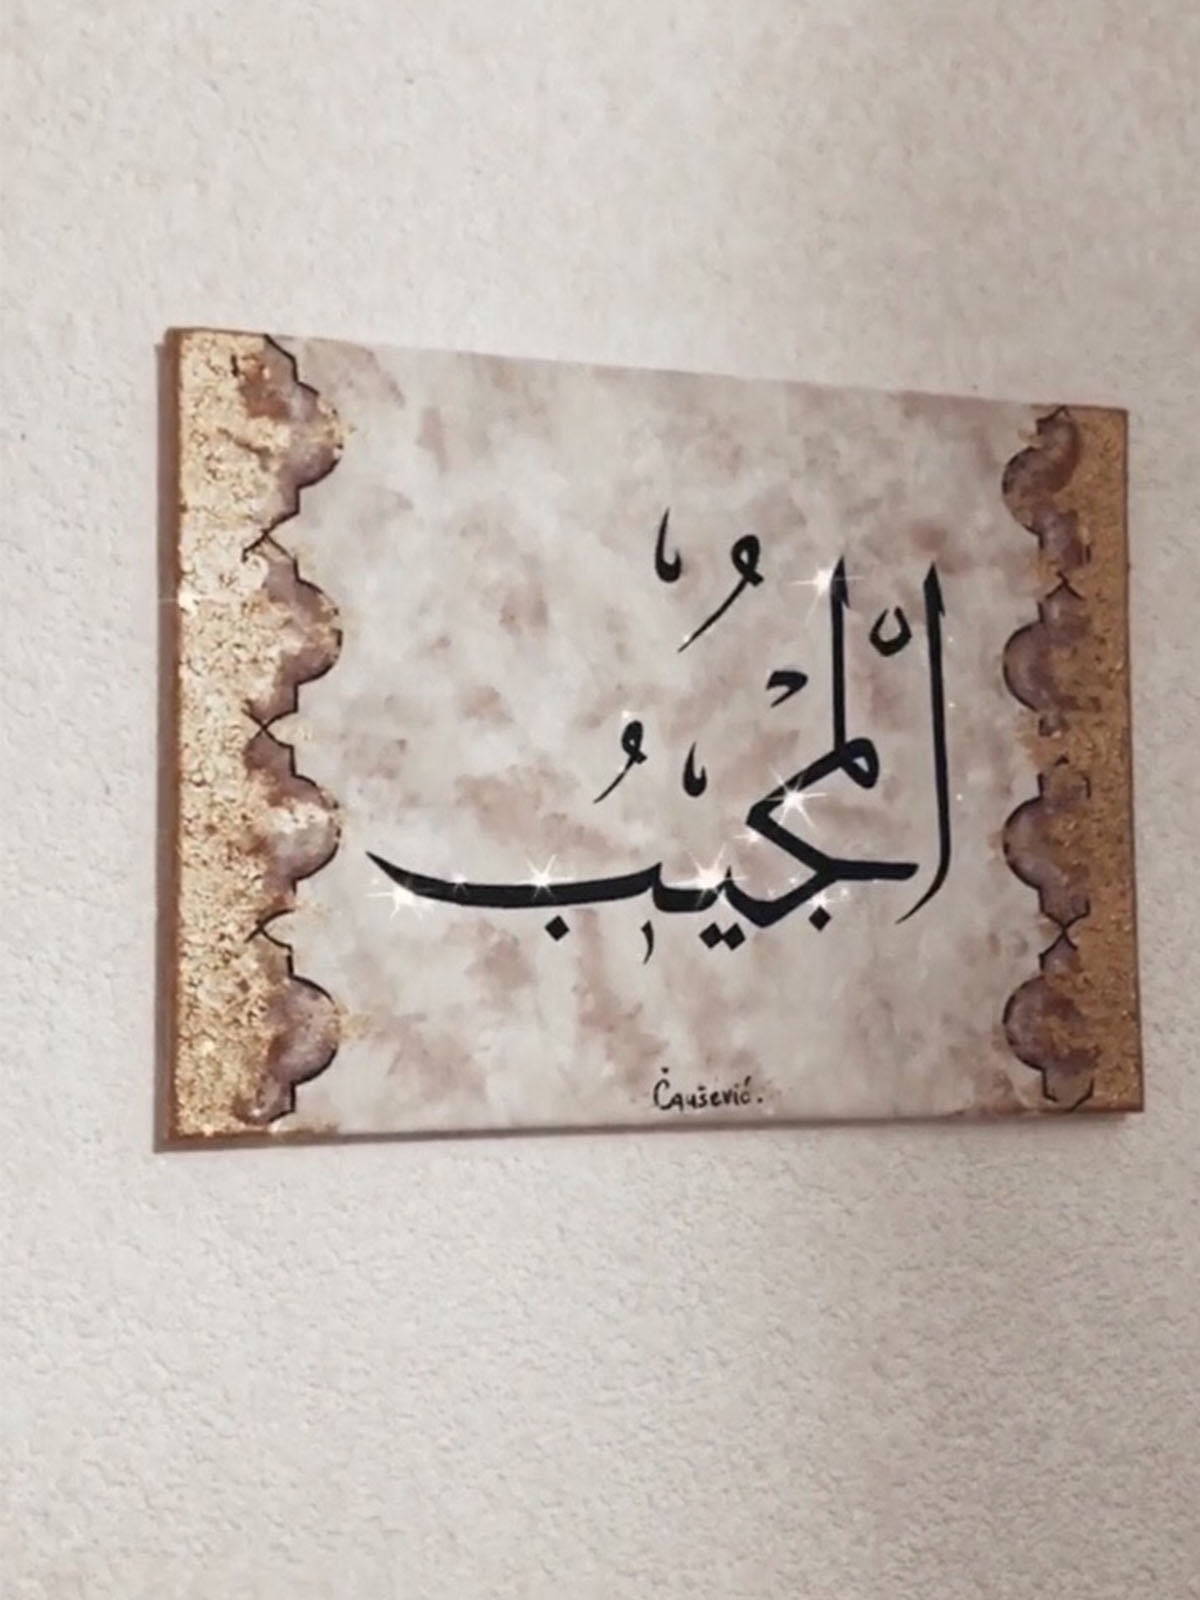 المجيب
Čaušević.